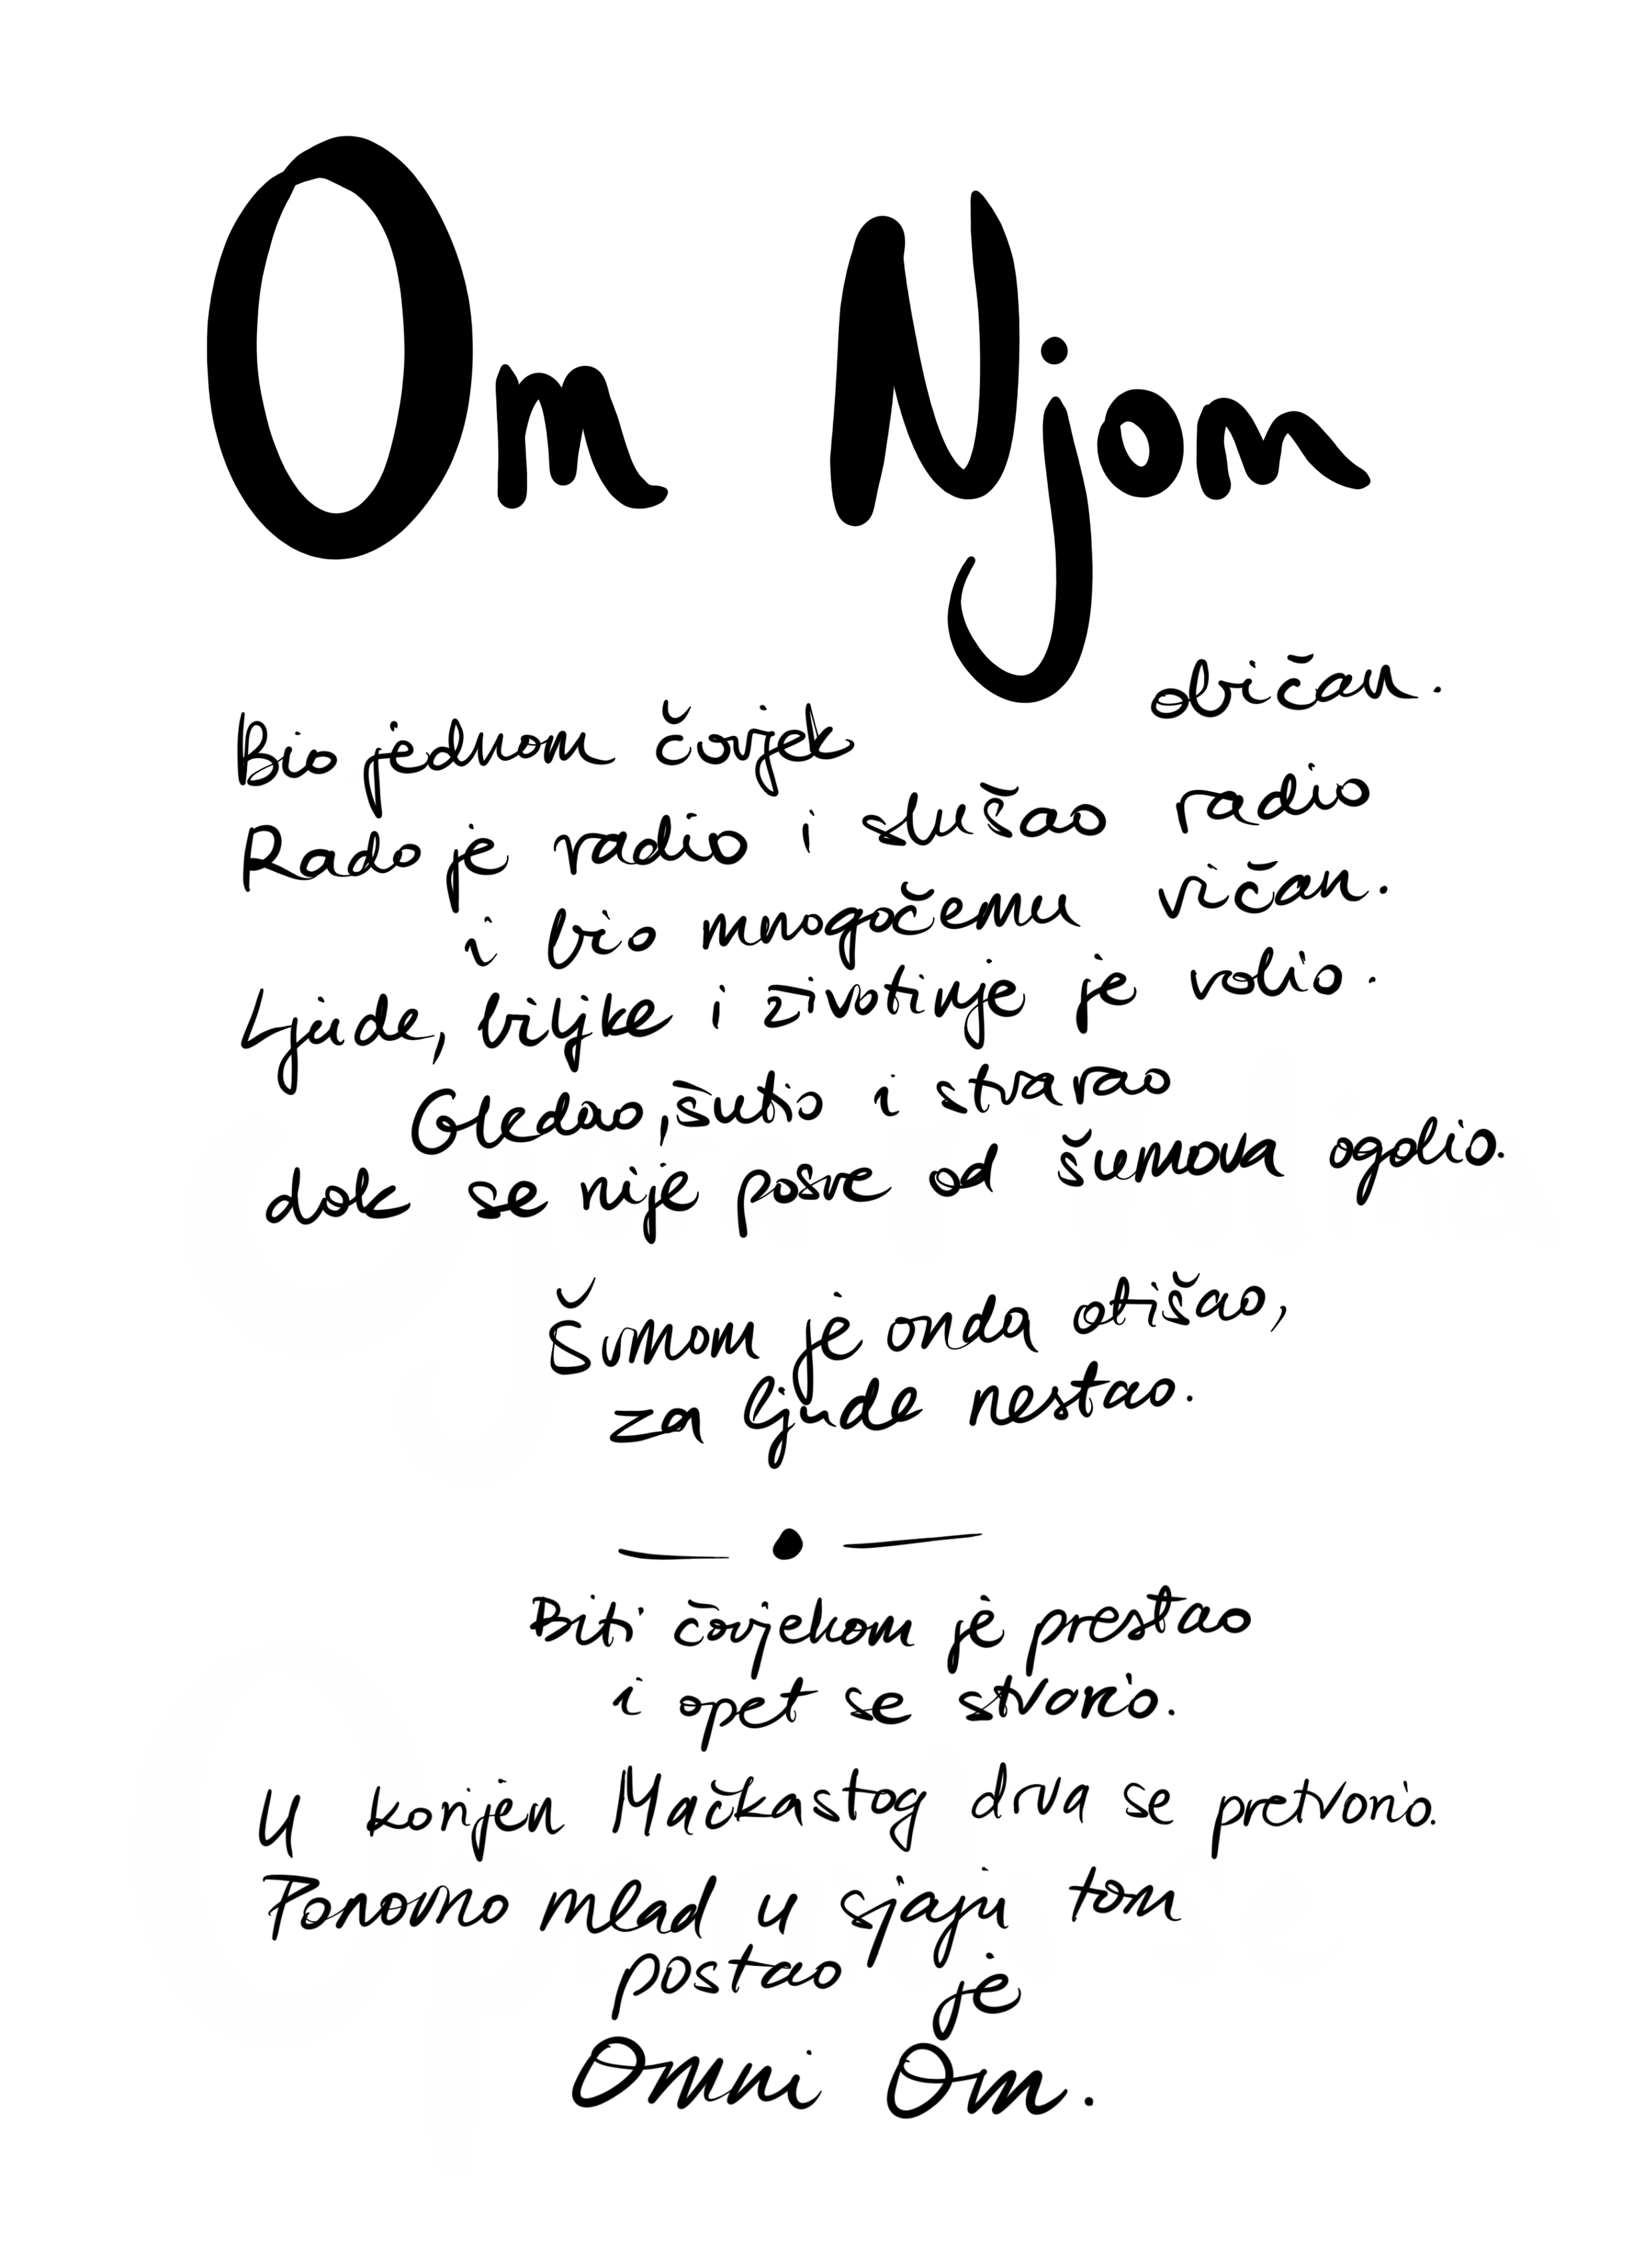 Om Njom
Bio jednom čovjek običan.
Rado je radio i slušao radio
i bio mnogočemu vičan.
Ljude, biljke i životinje je volio.
Gledao, šutio i stvarao
dok se nije posve od šumova ogolio.
Šumom je onda otišao,
za ljude nestao.
Biti čovjekom je prestao
i opet se stvorio.
U korijen Mačkastog drva se pretvorio.
Ponovno mlad u sjaju tom
postao je
Omni Om.